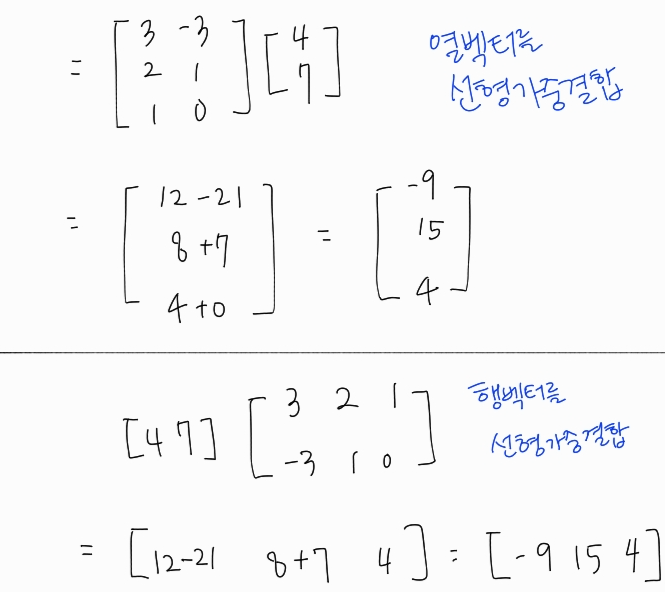 = [ 3 -3
2 1
1 0 ] [ 4
7 ]
열벡터를
선형가중결합
= [ 12-21
8+7
4+0 ] = [ -9
15
4 ]
[4 7] [ 3 2 1
-3 1 0 ]
행벡터를
선형가중결합
= [12-21 8+7 4] = [-9 15 4]